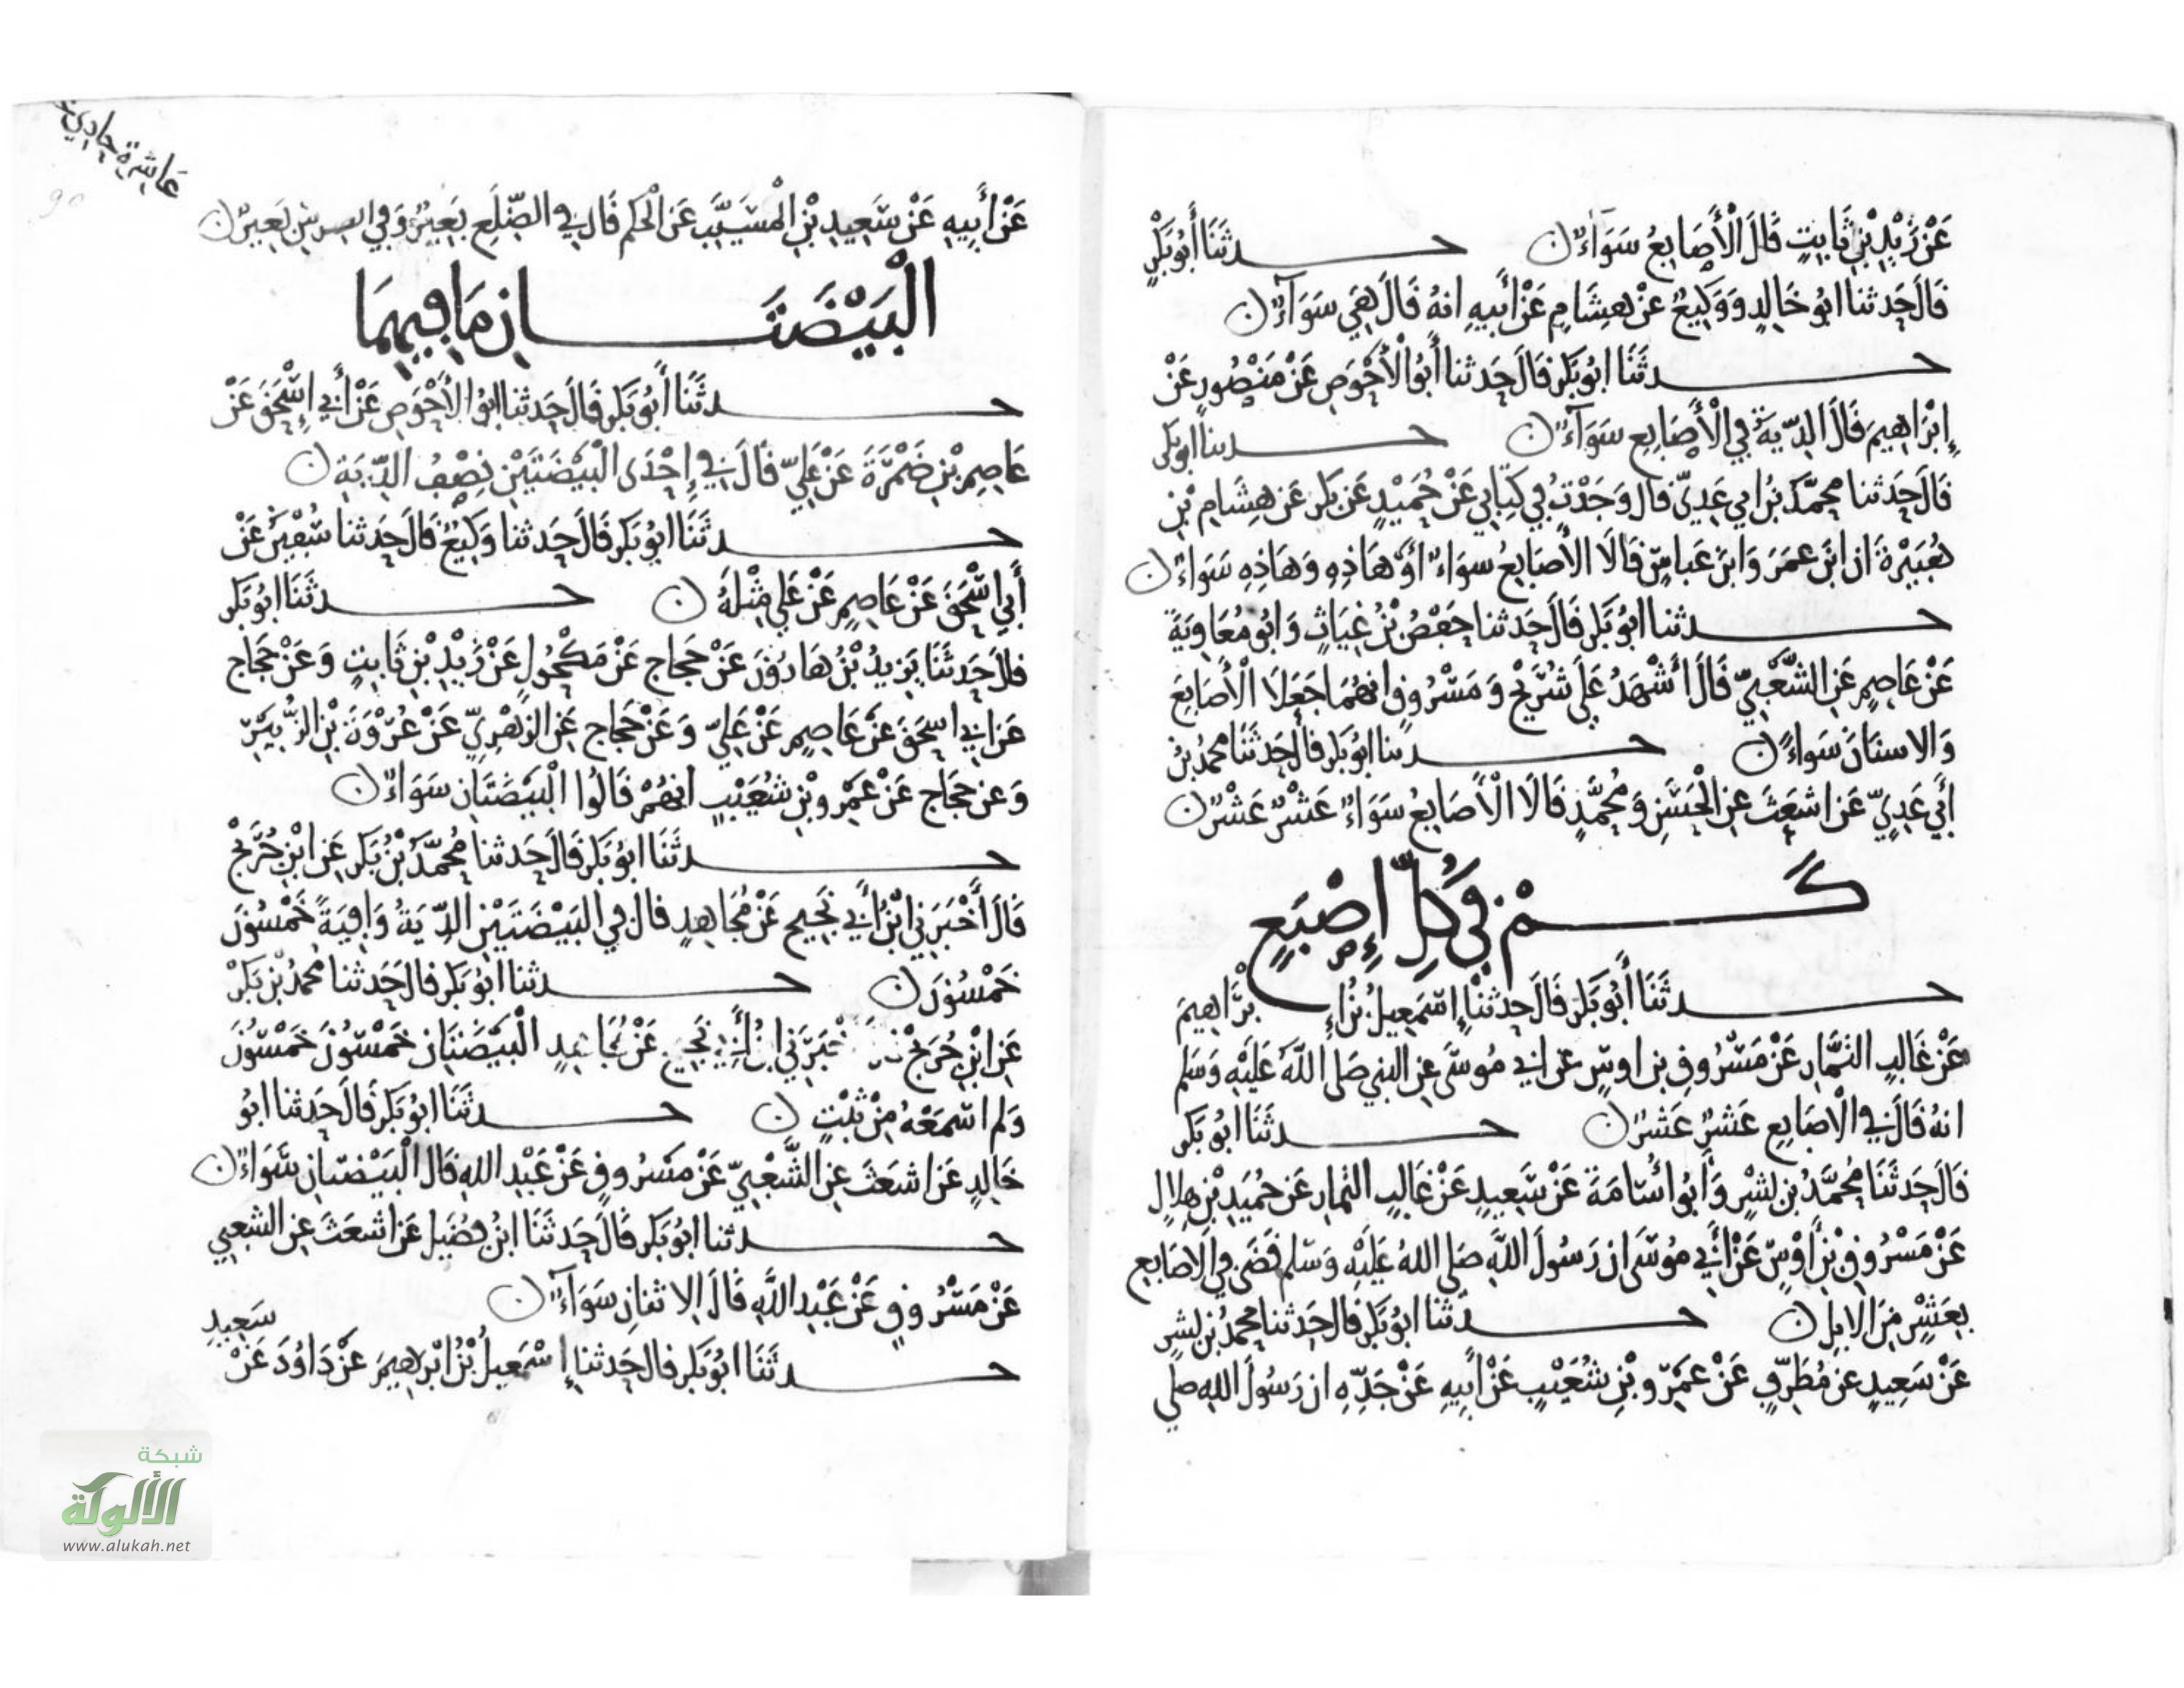 عَنْ زَيْدِ بْنِ ثَابِتٍ قَالَ الْأَصَابِعُ سَوَاءٌ ن حدثَنَا أَبُو بَكْرٍ
قَالَ حَدثنا ابُو خَالِدٍ وَوَكِيعٌ عَنْ هِشَامٍ عَنْ أَبِيهِ انهُ قَالَ هِيَ سَوَآءٌ ن
حدثَنَا ابُو بَكْر قَالَ حَدثنا أَبُو الْأَحْوَصِ عَنْ مَنْصُورٍ عَنْ
إِبْرَاهِيمَ قَالَ الدِّيَةُ فِي الْأَصَابِعِ سَوَآءٌ ن حدثنا ابو بكر
قَالَ حَدثنا مُحمَّدُ بْنُ ابي عَدِيٍّ قال وَجَدْتُ فِي كِتَابِي عَنْ حُمَيْدٍ عَن بَكر عَن هِشَامِ بْنِ
هُبَيْرَةَ ان ابْنَ عمَرَ وَابْنَ عَباسٍ قَالَا الأَصَابِعُ سَوَاءٌ أَوْ هَاذِهِ وَهَاذِهِ سَوَاءٌ ن
حدثنا ابُو بَكْر قَالَ حَدثنا حَفْصُ بْنُ غِيَاثٍ وَابُو مُعَاوِيَةَ
عَنْ عَاصِمٍ عَنِ الشَّعْبِيِّ قَالَ أَشْهَدُ عَلَى شُرَيْحٍ وَمَسْرُوقٍ انهُمَا جَعَلَا الْأَصَابِعَ
وَالاسنَانَ سَوَاءً ن حدثنا ابُو بَكر قَالَ حَدثَنَا محمدُ بْنُ
أَبِي عَدِيٍّ عَن اشعَثَ عَنِ الْحَسَنِ وَمُحَمَّدٍ قَالَا الْأَصَابِعُ سَوَاءٌ عَشْرٌ عَشْرٌ ن
كَمْ فِي كُلِّ إِصْبَعٍ
حدثَنَا أَبُو بَكْر قَالَ حَدثنا إِسْمَعِيلُ بْنُ إِبْرَاهِيمَ
عَنْ غَالِبٍ التَّمَّارِ عَنْ مَسْرُوقِ بن اوسٍ عن ابي مُوسَى عن النبي صَلى اللَّهُ عَلَيْهِ وَسَلم
انهُ قَالَ فِي الْاصَابِعِ عَشْرٌ عَشْرٌ ن حدثَنَا ابُو بَكْر
قَالَ حَدثَنَا مُحَمَّدُ بن بشْرٍ وَأَبُو اسَامَةَ عَنْ سَعِيدٍ عَنْ غَالِبٍ التمارِ عَن حُمَيدِ بْنِ هِلَالٍ
عَنْ مَسْرُوقِ بْنِ أَوْسٍ عَنْ أَبِي مُوسَى ان رَسُولَ اللَّهِ صَلى اللهُ عَلَيْهِ وَسَلم قَضَى فِي الَاصَابعِ
بِعَشْرٍ مِنَ الابِلِ ن حدثنا ابُو بَكْر قال حَدثنا محمدُ بن بشرٍ
عَنْ سَعِيدٍ عَنْ مُطَرِّفٍ عَنْ عَمْرِو بْنِ شُعَيْبٍ عَنْ أَبِيهِ عَنْ جَدِّهِ ان رَسُولَ اللهِ صلى
عَاشِرَة حادي
عَنْ أَبِيهِ عَنْ سَعِيدِ بْنِ الْمُسَيَّبِ عَن الْحَكَمِ قَالَ فِي الضِّلَعِ بَعِيرٌ وَفِي الضرسِ بَعِيرٌ ن
الْبَيْضَتَانِ مَا فِيهِمَا
حدثَنَا أَبُو بَكْر قَالَ حَدثنا ابُو الْأَحْوَصِ عَنْ أَبِي إِسْحَقَ عَنْ
عَاصِمِ بْنِ ضَمْرَةَ عَنْ عَلِيٍّ قَالَ فِي إِحْدَى الْبَيْضَتَيْنِ نِصْفُ الدِّيَةِ ن
حدثَنَا ابُو بَكْر قَالَ حَدثنا وَكِيعٌ قَالَ حَدثنا سُفْيَنُ عَنْ
أَبِي اسْحَقَ عَنْ عَاصِمٍ عَنْ عَلِي مِثْلَهُ ن حدثَنَا ابُو بَكْر
قالَ حَدثَنَا يَزِيدُ بْنُ هَارُونَ عَنْ حَجاج عَنْ مَكْحُولٍ عَنْ زَيْدِ بْنِ ثَابِتٍ وَعَنْ حَجاج
عَن ابِي اسحَقَ عَنْ عَاصِمٍ عَنْ عَلِيٍّ وَعَنْ حَجاج عَنِ الزُهْرِيِّ عَنْ عُرْوَةَ بْنِ الزُّبَيْرِ
وَعن حَجاج عَنْ عَمْرِو بْنِ شُعَيْبٍ انهُمْ قَالُوا الْبَيْضَتَانِ سَوَاءٌ ن
حدثَنَا ابُو بَكْر قَالَ حَدثنا مُحَمَّدُ بْنُ بَكْرٍ عَنِ ابْنِ جُرَيْجٍ
قَالَ أَخْبَرَنِي ابْنُ أَبِي نَجِيحٍ عَنْ مُجَاهِدٍ قال فِي البَيْضَتَيْنِ الدِّيَةُ وَافِيَةً خَمْسُونَ
خَمْسُونَ ن حدثنا ابُو بَكر قالَ حَدثنا محمدُ بْنُ بَكْرٍ
عَنِ ابْنِ جُرَيْجٍ خْبَرَنِي ابنُ أَبِي نَجِيحٍ عَنْ مُجَاهِدٍ الْبَيْضَتَانِ خَمْسُونَ خَمْسُونَ
وَلم اسْمَعْهُ مِنْ ثَبْتٍ ن حدثَنَا ابُو بَكْر قَالَ حَدثنا ابُو
خَالِدٍ عَن اشعَثَ عَنِ الشَّعْبِيِّ عَنْ مَسْرُوقٍ عَنْ عَبْدِ اللهِ قَال الْبَيْضَتَانِ سَوَاءٌ ن
حدثنا ابُو بَكْر قَالَ حَدثَنَا ابْنُ فُضَيلٍ عَن اشعَثَ عَنِ الشعبِي
عَنْ مَسْرُوقٍ عَنْ عَبْدِ اللَّهِ قَالَ الاثنانِ سَوَآءٌ ن
حدثَنَا ابُو بَكْر قال حَدثنا إِسْمَعِيلُ بْنُ ابْرَاهِيمَ عَنْ دَاوُدَ عَنْ
سَعِيدِ
شبكة
الألوكة
www.alukah.net